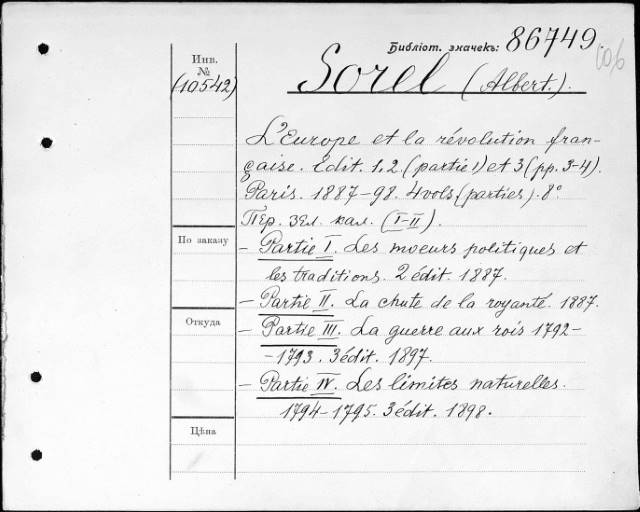 Библіот. значекъ: 86749.
106
Инв.
№
(10542)
Sorel (Albert.).
L'Europe et la révolution fran-
çaise. Édit. 1, 2. (partie 1) et 3 (pp. 3-4).
Paris. 1887-98. 4 vols (parties). 8°
Пер. зел. кал. (I-II).
По заказу
- Partie I. Les moeurs politiques et
les traditions. 2 édit. 1887.
- Partie II. La chute de la royauté. 1887.
Откуда
- Partie III. La guerre aux rois 1792-
-1793. 3 édit. 1897.
- Partie IV. Les limites naturelles.
1794-1795. 3 édit. 1898.
Цѣна